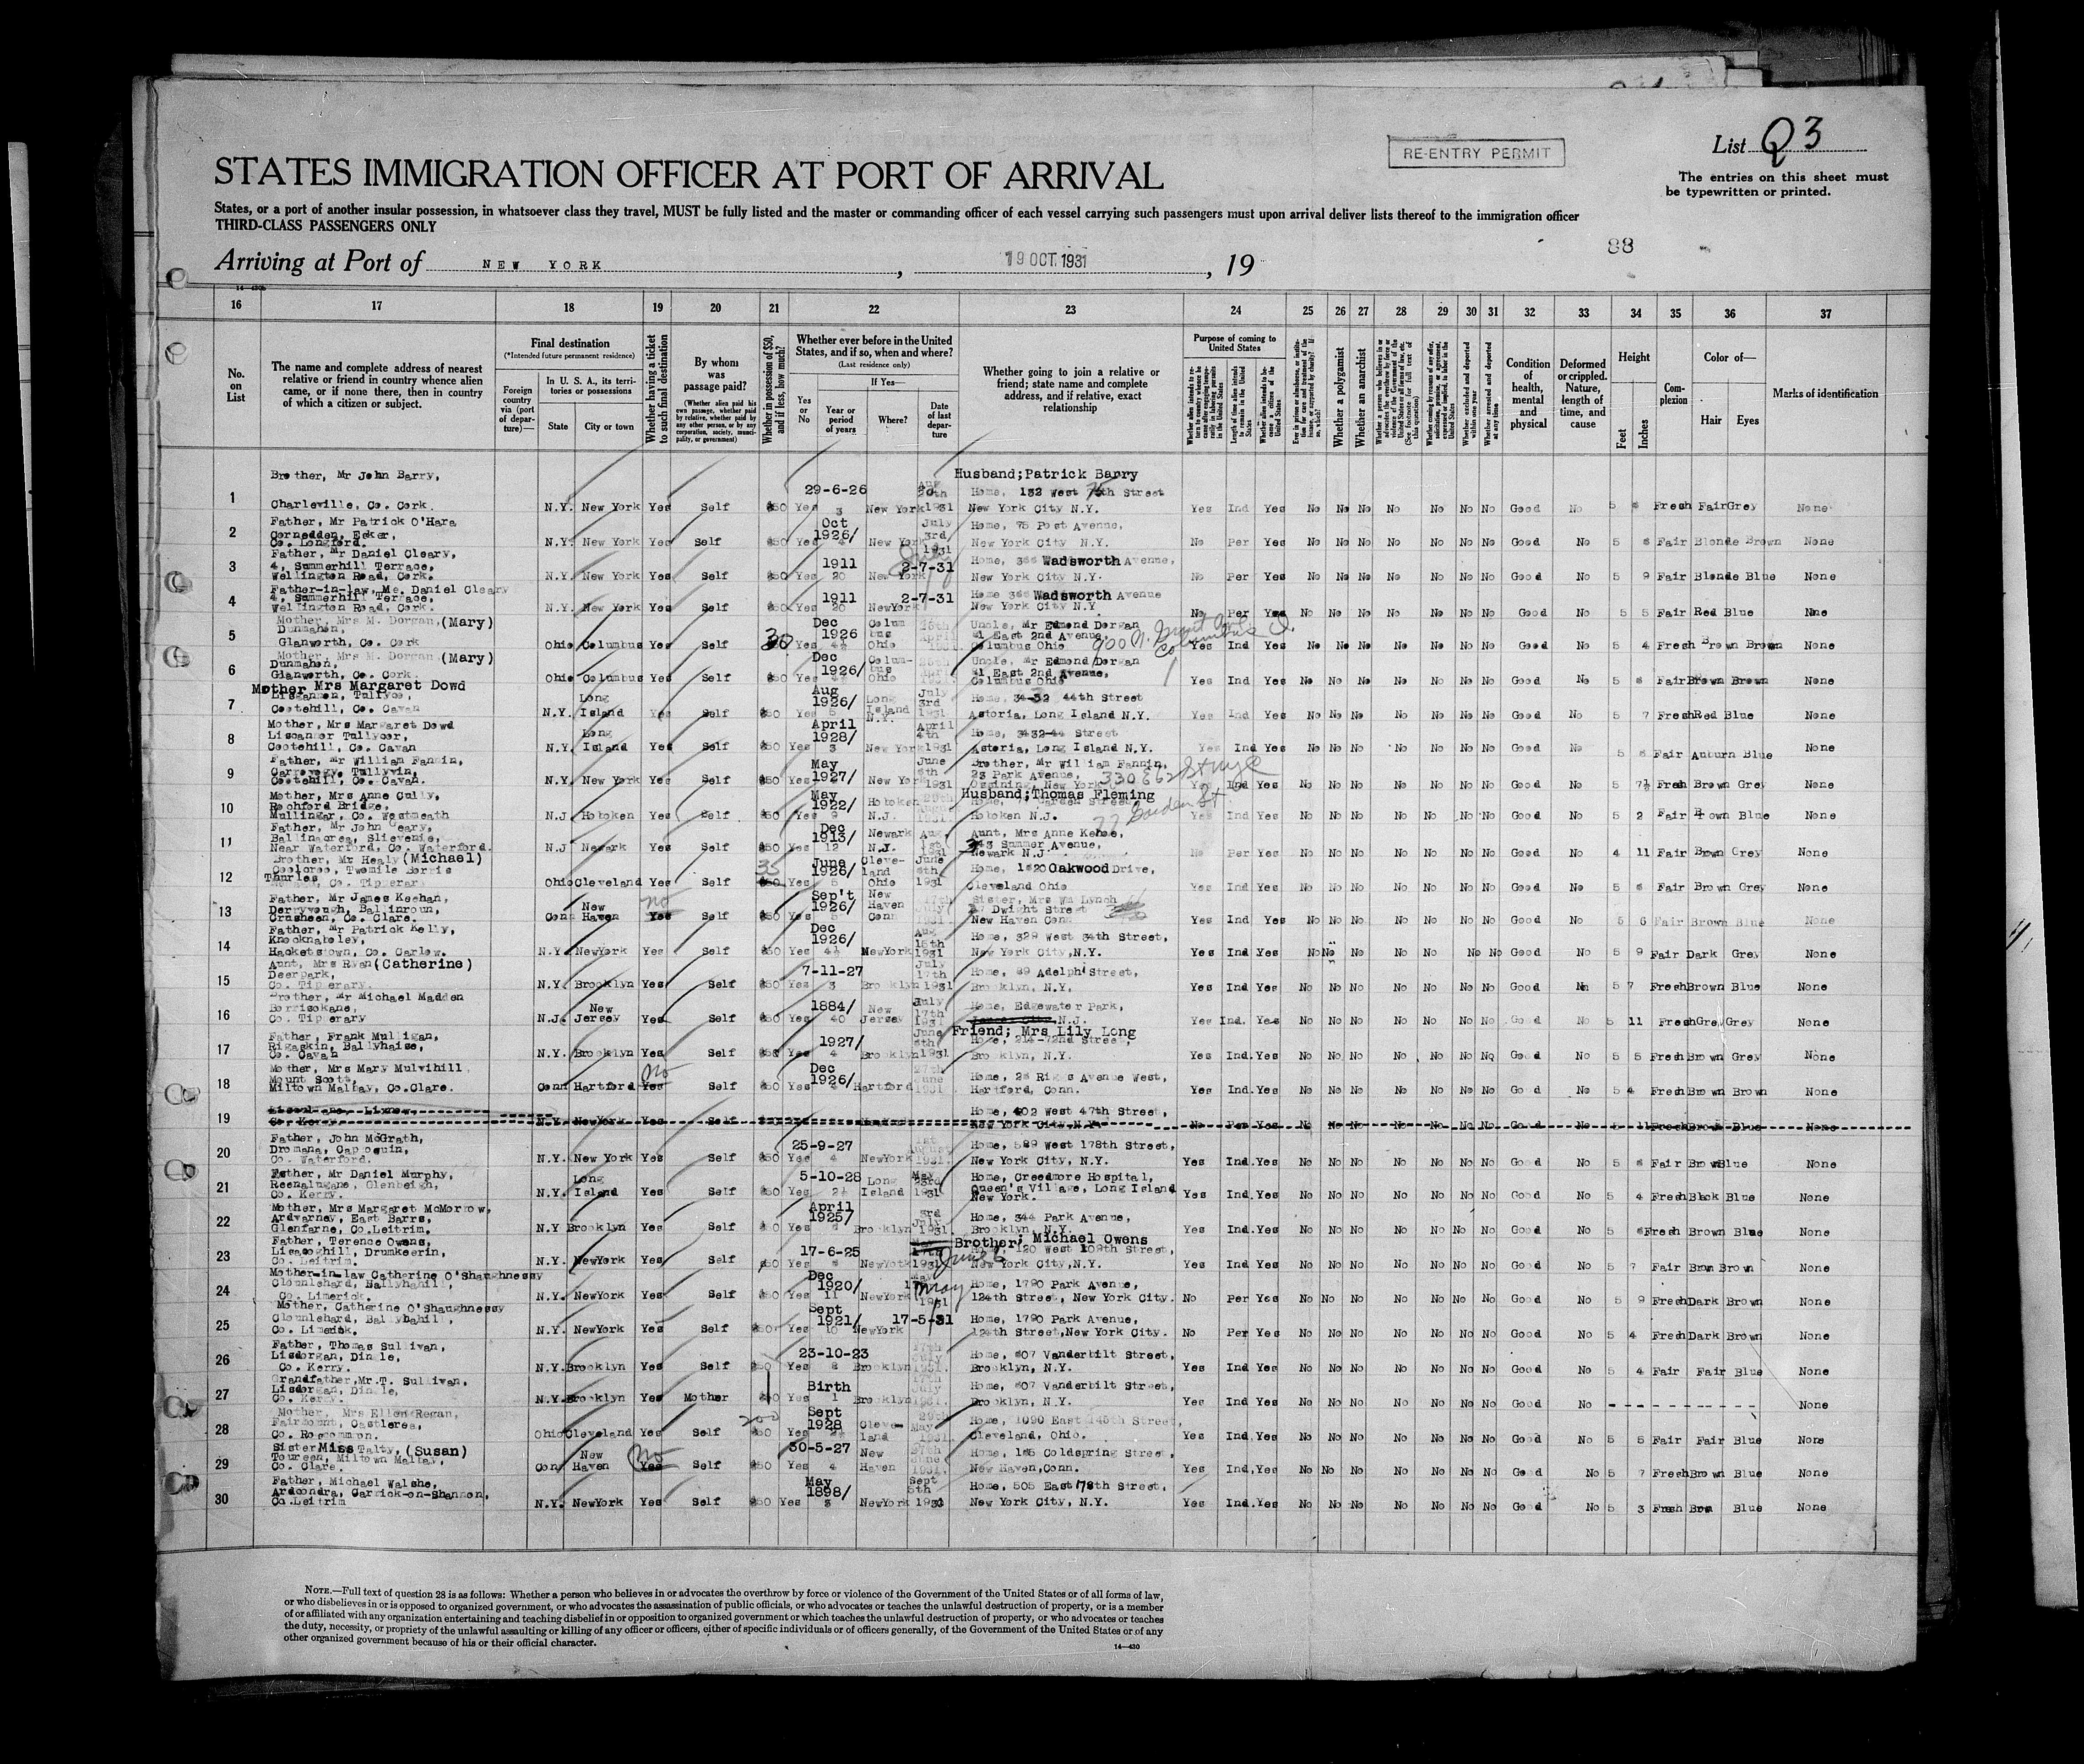 List Q3
RE-ENTRY PERMIT
STATES IMMIGRATION OFFICER AT PORT OF ARRIVAL
The entries on this sheet must
be typewritten or printed.
States, or a port of another insular possession, in whatsoever class they travel, MUST be fully listed and the master or commanding officer of each vessel carrying such passengers must upon arrival deliver lists thereof to the immigration officer
THIRD-CLASS PASSENGERS ONLY
88
Arriving at Port of NEW YORK, 19 OCT. 1931, 19
16 17 18 19 20 21 22 23 24 25 26 27 28 29 30 31 32 33 34 35 36 37
No. on List
The name and complete address of nearest relative or friend in country whence alien came, or if none there, then in country of which a citizen or subject.
Final destination
(*Intended future permanent residence)
Foreign country via (port of departure)—
In U. S. A., its territories or possessions
State City or town
Whether having a ticket to such final destination
By whom was passage paid?
(Whether alien paid his own passage, whether paid by relative, whether paid by any other person, or by any corporation, society, municipality, or government)
Whether in possession of $50, and if less, how much?
Whether ever before in the United States, and if so, when and where?
(Last residence only)
Yes or No
If Yes—
Year or period of years Where? Date of last departure
Whether going to join a relative or friend; state name and complete address, and if relative, exact relationship
Purpose of coming to United States
Whether a polygamist
Whether an anarchist
Whether excluded and deported within one year
Whether arrested and deported at any time
Condition of health, mental and physical
Deformed or crippled. Nature, length of time, and cause
Height
Feet Inches
Complexion
Color of—
Hair Eyes
Marks of identification
1 Brother, Mr John Barry,
Charleville, Co. Cork. N.Y. New York Yes Self $50 Yes 29-6-26 3 New York 1931 Husband;Patrick Barry
Home, 132 West 75th Street
New York City N.Y. Yes Ind Yes No No No No No No No Good No 5 Fresh Fair Grey None
2 Father, Mr Patrick O'Hara
Cornedden, Esker,
Co. Longford. N.Y. New York Yes Self $50 Yes Oct 1926/ New York July 3rd 1931 Home, 75 Post Avenue,
New York City N.Y. No Per Yes No No No No No No No Good No 5 Fair Blonde Brown None
3 Father, Mr Daniel Cleary,
4, Summerhill Terrace,
Wellington Road, Cork. N.Y. New York Yes Self $50 Yes 1911 20 New York 2-7-31 Home, Wadsworth Avenue,
New York City N.Y. No Per Yes No No No No No No No Good No 5 9 Fair Blonde Blue None
4 Father-in-law, Mr. Daniel Cleary
4, Summerhill Terrace,
Wellington Road, Cork. N.Y. New York Yes Self $50 Yes 1911 20 NewYork 2-7-31 Home Wadsworth Avenue
New York City N.Y No Per Yes No No No No No No No Good No 5 5 Fair Red Blue None
5 Mother, Mrs M. Dorgan, (Mary)
Dunmahon,
Glanworth, Co. Cork Ohio Columbus Yes Self 30 Yes Dec 1926 4½ Columbus Ohio April Uncle, Mr Edmond Dorgan
East 2nd Avenue,
Columbus Ohio 900 N. Grant Ave Columbus O. Yes Ind Yes No No No No No No No Good No 5 4 Fresh Brown Brown None
6 Mother, Mrs M. Dorgan (Mary)
Dunmahon,
Glanworth, Co. Cork. Ohio Columbus Yes Self $50 Yes Dec 1926/ Columbus Ohio Uncle, Mr Edmond Dorgan
East 2nd Avenue,
Columbus Ohio Yes Ind Yes No No No No No No No Good No 5 Fair Brown Brown None
7 Mother Mrs Margaret Dowd
Cootehill, Co. Cavan N.Y. Long Island Yes Self $50 Yes Aug 1926/ 5 Long Island N.Y. July 3rd 1931 Home, 34-32 44th Street
Astoria, Long Island N.Y. Yes Ind Yes No No No No No No No Good No 5 7 Fresh Red Blue None
8 Mother, Mrs Margaret Dowd
Cootehill, Co. Cavan N.Y. Long Island Yes Self $50 Yes April 1928/ 3 New York April 4th 1931 Home, 3432-44 Street
Astoria, Long Island N.Y. Yes Ind Yes No No No No No No No Good No 5 Fair Auburn Blue None
9 Father, Mr William Fannin,
Cootehill, Co. Cavan. N.Y. New York Yes Self $50 Yes May 1927/ New York June 1931 Brother, Mr William Fannin,
23 Park Avenue,
Ossining, New York 330 E 62 St nyc Yes Ind Yes No No No No No No No Good No 5 7½ Fresh Brown Grey None
10 Mother, Mrs Anne Cully,
Rochford Bridge,
Mullingar, Co. Westmeath N.J. Hoboken Yes Self $50 Yes May 1922/ 9 Hoboken N.J. Husband;Thomas Fleming
Home, Garden Street
Hoboken N.J. 77 Garden St Yes Ind Yes No No No No No No No Good No 5 2 Fair Brown Blue None
11 Father, Mr John Geary,
Near Waterford, Co. Waterford. N.J Newark Yes Self $50 Yes Dec 1913/ 12 Newark N.J. Aug 1931 Aunt, Mrs Anne Kehoe,
343 Summer Avenue,
Newark N.J No Per Yes No No No No No No No Good No 4 11 Fair Brown Grey None
12 Brother, Mr Healy (Michael)
Thurles, Co. Tipperary Ohio Cleveland Yes Self 35 $50 Yes June 1926/ 5 Cleveland Ohio June 1931 Home, Oakwood Drive,
Cleveland Ohio Yes Ind Yes No No No No No No No Good No 5 Fair Brown Grey None
13 Father, Mr James Keehan,
Derryvough, Ballinroun,
Crusheen, Co. Clare. Conn New Haven no Yes Self $50 Yes Sep't 1926/ New Haven Conn July Sister, Mrs Wm Lynch
Dwight Street
New Haven Conn Yes Ind Yes No No No No No No No Good No 5 6 Fair Brown Blue None
14 Father, Mr Patrick Kelly,
Knocknaboley,
Hacketstown, Co. Carlow. N.Y. NewYork Yes Self $50 Yes Dec 1926/ 4½ NewYork Aug 15th 1931 Home, 329 West 34th Street,
New York City, N.Y. Yes Ind Yes No No No No No No No Good No 5 9 Fair Dark Grey None
15 Aunt, Mrs Ryan (Catherine)
Deerpark,
Co. Tipperary. N.Y. Brooklyn Yes Self $50 Yes 7-11-27 3 Brooklyn July 17th 1931 Home, 69 Adelphi Street,
Brooklyn, N.Y. Yes Ind Yes No No No No No No No Good No 5 7 Fresh Brown Blue None
16 Brother, Mr Michael Madden
Borrisokane,
Co. Tipperary N.J. New Jersey Yes Self $50 Yes 1884/ 40 New Jersey July 17th 1931 Home, Edgewater Park,
N.J. Yes Ind. Yes No No No No No No No Good No 5 11 Fresh Grey Grey None
17 Father, Frank Mulligan,
Rigaskin, Ballyhaise,
Co. Cavan N.Y. Brooklyn Yes Self Yes 1927/ 4 Brooklyn June 1931 Friend; Mrs Lily Long
Home, 214-72nd Street,
Brooklyn, N.Y. Yes Ind. Yes No No No No No No No Good No 5 5 Fresh Brown Grey None
18 Mother, Mrs Mary Mulvihill
Mount Scott,
Miltown Malbay, Co.Clare. Conn Hartford no Yes Self $50 Yes Dec 1926/ Hartford 27th June 1931 Home, Riggs Avenue West,
Hartford, Conn. Yes Ind. Yes No No No No No No No Good No 5 4 Fresh Brown Brown None
19 Co. Kerry. N.Y. NewYork Yes Self Home, 402 West 47th Street,
New York City, N.Y. No Per Yes No No No No No No No Good No 5 11 Fresh Brown Blue None
20 Father, John McGrath,
Dromana, Cappoquin,
Co. Waterford. N.Y. New York Yes Self $50 Yes 25-9-27 4 NewYork August 1931. Home, 599 West 178th Street,
New York City, N.Y. Yes Ind. Yes No No No No No No No Good No 5 Fair Brown Blue None
21 Father, Mr Daniel Murphy,
Reenalugane, Glenbeigh,
Co. Kerry. N.Y. Long Island Yes Self $50 Yes 5-10-28 2½ Long Island May 23rd 1931 Home, Creedmore Hospital,
Queen's Village, Long Island
New York. Yes Ind. Yes No No No No No No No Good No 5 4 Fresh Black Blue None
22 Mother, Mrs Margaret McMorrow,
Ardvarney, East Barrs,
Glenfarne, Co.Leitrim. N.Y Brooklyn Yes Self Yes April 1925/ Brooklyn 3rd July 1931 Home, 344 Park Avenue,
Brooklyn, N.Y. Yes Ind. Yes No No No No No No No Good No 5 Fresh Brown Blue None
23 Father, Terence Owens,
Lisacoghill, Drumkeerin,
Co. Leitrim. N.Y. NewYork Yes Self $50 Yes 17-6-25 NewYork 1931 June 6 Brother; Michael Owens
Home, 120 West 109th Street,
New York City,N.Y. Yes Ind Yes No No No No No No No Good No 5 7 Fair Brown Brown None
24 Mother-in-law Catherine O'Shaughnessy
Clounlehard, Ballyhahill,
Co. Limerick. N.Y. NewYork Yes Self $50 Yes Dec 1920/ 11 NewYork May 1931 Home, 1790 Park Avenue,
124th Street, New York City. No Per Yes No No No No No No No Good No 5 9 Fresh Dark Brown None
25 Mother, Catherine O'Shaughnessy
Clounlehard, Ballyhahill,
Co. Limerick. N.Y. NewYork Yes Self $50 Yes Sept 1921/ 10 NewYork 17-5-31 Home, 1790 Park Avenue,
124th Street,New York City. No Per Yes No No No No No No No Good No 5 4 Fresh Dark Brown None
26 Father, Thomas Sullivan,
Lisdorgan, Dingle,
Co. Kerry. N.Y. Brooklyn Yes Self $50 Yes 23-10-23 8 Brooklyn 17th July 1931. Home, 607 Vanderbilt Street,
Brooklyn, N.Y. Yes Ind. Yes No No No No No No No Good No 5 4 Fair Fair Blue None
27 Grandfather,Mr.T. Sullivan,
Lisdorgan, Dingle,
Co. Kerry. N.Y. Brooklyn Yes Mother $50 Yes Birth 1 Brooklyn 17th July 1931. Home, 607 Vanderbilt Street,
Brooklyn, N.Y. Yes Ind. Yes No No No No No No No Good No - - - - - - - - - - - None
28 Mother, Mrs Ellen Regan,
Fairmount, Castlerea,
Co. Roscommon. Ohio Cleveland Yes Self 200 $50 Yes Sept 1928 2½ Cleveland May 1931. Home, 1090 East 145th Street,
Cleveland, Ohio. Yes Ind. Yes No No No No No No No Good No 5 5 Fair Fair Blue None
29 Sister Miss Talty, (Susan)
Toureen, Miltown Malbay,
Co. Clare. Conn New Haven no Yes Self $50 Yes 30-5-27 4 New Haven 27th June 1931. Home, Coldspring Street,
New Haven,Conn. Yes Ind. Yes No No No No No No No Good No 5 7 Fresh Brown Blue None
30 Father, Michael Walshe,
Ardcondra, Carrick-on-Shannon,
Co.Leitrim N.Y. NewYork Yes Self $50 Yes May 1898/ 3 NewYork Sept 5th 1931 Home, 505 East 178th Street,
New York City, N.Y. Yes Ind. Yes No No No No No No No Good No 5 3 Fresh Brown Blue None
NOTE.—Full text of question 28 is as follows: Whether a person who believes in or advocates the overthrow by force or violence of the Government of the United States or of all forms of law,
or who disbelieves in or is opposed to organized government, or who advocates the assassination of public officials, or who advocates or teaches the unlawful destruction of property, or is a member
of or affiliated with any organization entertaining and teaching disbelief in or opposition to organized government or which teaches the unlawful destruction of property, or who advocates or teaches
the duty, necessity, or propriety of the unlawful assaulting or killing of any officer or officers, either of specific individuals or of officers generally, of the Government of the United States or of any
other organized government because of his or their official character.
14—430